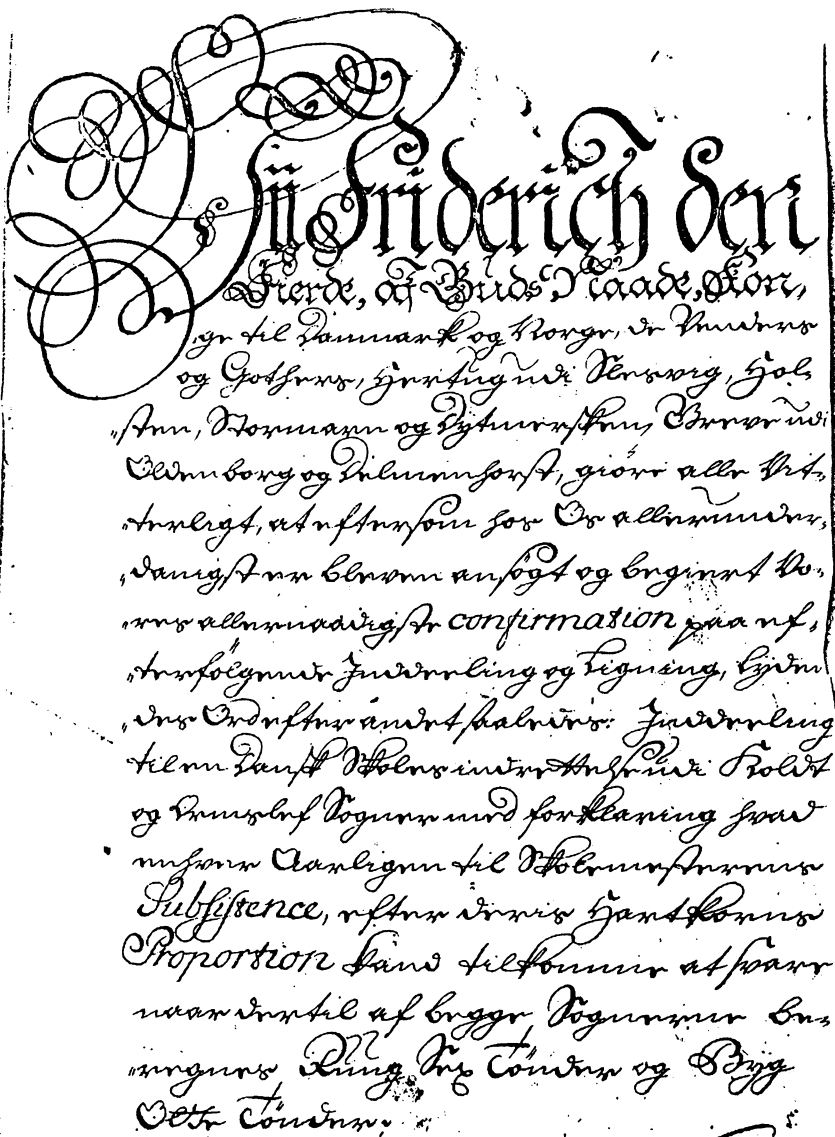 Vii Friderich den
Fierde, af Guds Naade, Kon,
,ge til Danmark og Norge, de Venders
og Gothers, Hertug udi Slesvig, Hol-
,sten, Stormarn og Dytmersken, Greve udi
Oldenborg og Delmenhorst, giöre alle Vit-
,terligt, at eftersom hos Os allerunder,
,danigst er bleven ansögt og begiert Vo-
,res allernaadigste confirmation paa ef-
,terfölgende Inddeeling og Ligning, Lyden
,des Ord efter andet saaledes: Inddeeling
til en Dansk Skoles indrettelse udi Koldt
og Ormslef Sogner med forklaring hvad
enhver Aarligen til Skolemesterens
Subsistence, efter deris Hartkorns
Proportion kand tilkomme at svare
naar dertil af begge Sognerne be-
,regnes Rüug Sex Tönder og Byg
Otte Tönder;